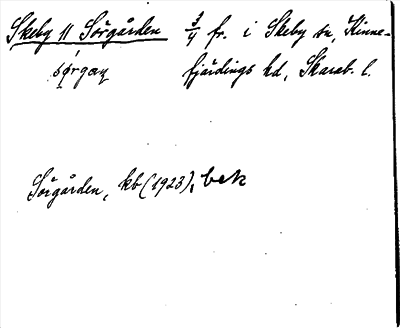 Skeby 11 Sörgården 3/4 fr. i Skeby sn, Kinne-
sørgaɳ fjärdings hd, Skarab. l.
Sörgården, kb (1923), bek